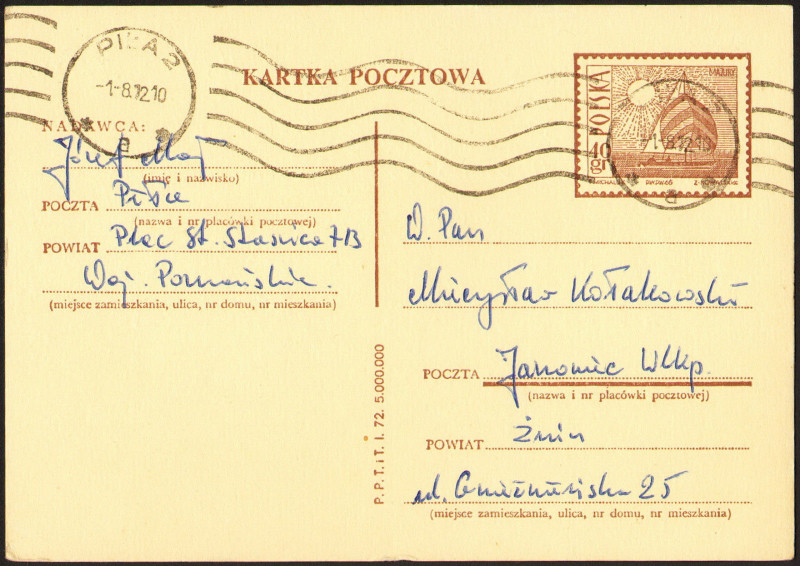 PIŁA 2
-1-8.72.10
a
KARTKA POCZTOWA
MAZURY
POLSKA
40 gr
-1-8.72.10
a
NADAWCA:
Józef Maj
(imię i nazwisko)
POCZTA Piła
(nazwa i nr placówki pocztowej)
POWIAT Plac St. Staszica 7B
Woj. Poznańskie
(miejsce zamieszkania, ulica, nr domu, nr mieszkania)
W. Pan
Mieczysław Kołakowski
POCZTA Janowiec Wlkp.
(nazwa i nr placówki pocztowej)
POWIAT Żnin
ul. Gnieźnieńska 25
(miejsce zamieszkania, ulica, nr domu, nr mieszkania)
P. P. T. i T. I. 72. 5.000.000